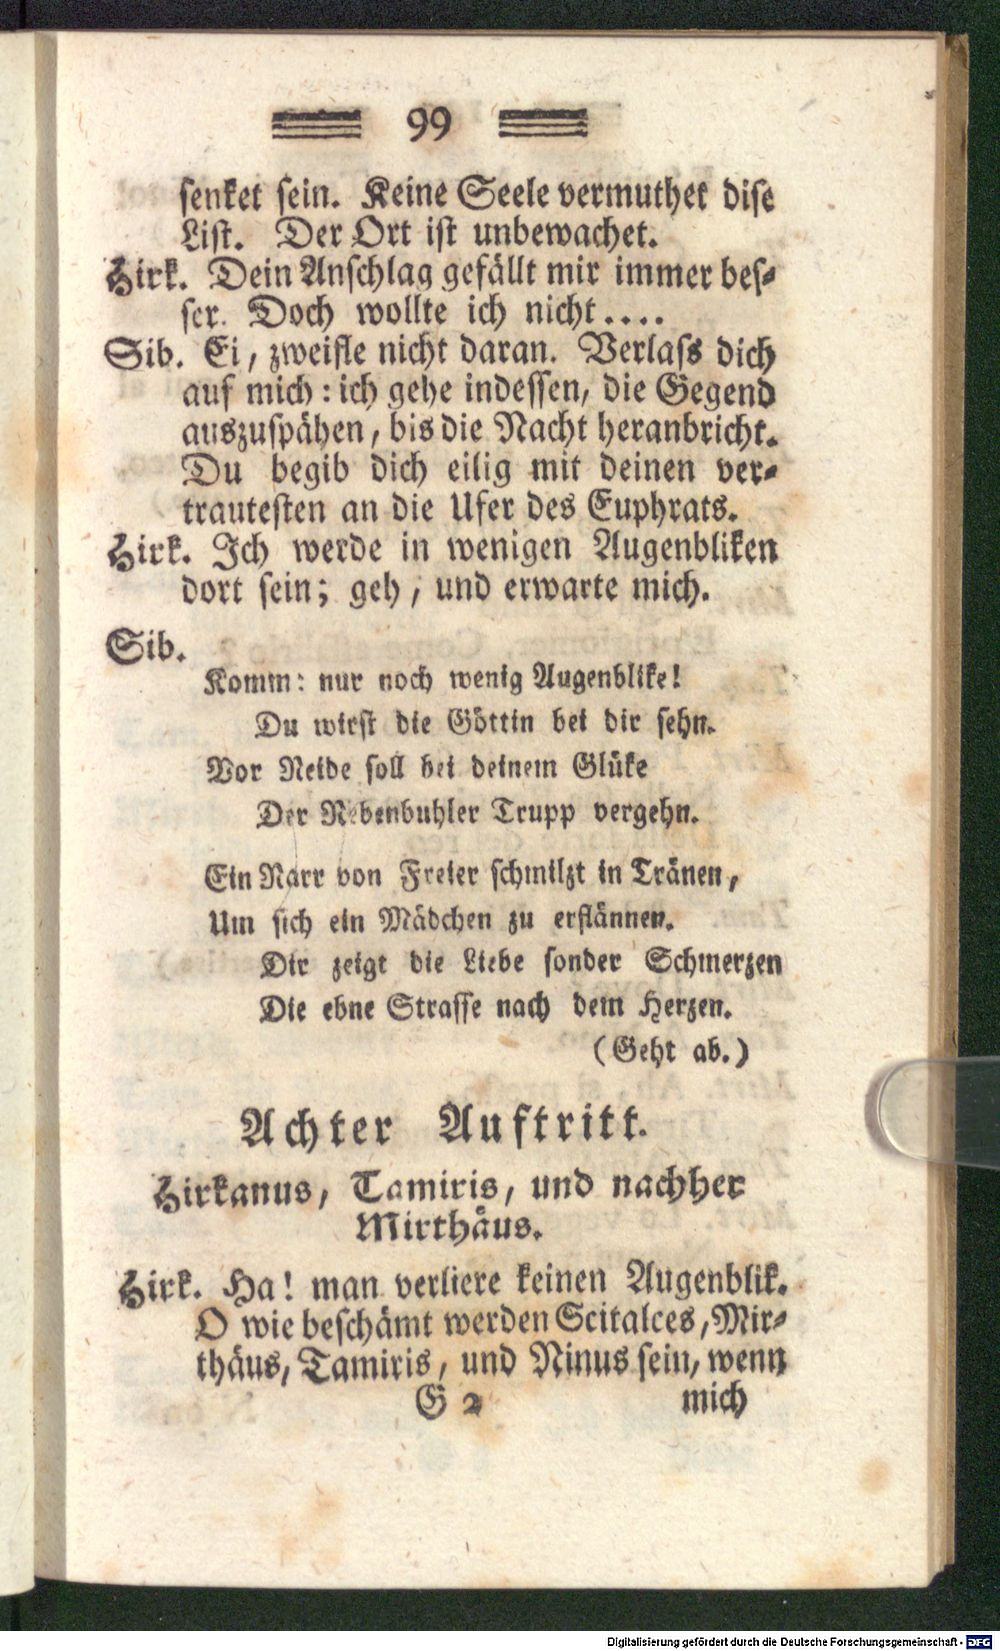 99
senket sein. Keine Seele vermuthet dise
List. Der Ort ist unbewachet.
Hirk. Dein Anschlag gefällt mir immer bes-
ser. Doch wollte ich nicht....
Sib. Ei, zweifle nicht daran. Verlass dich
auf mich: ich gehe indessen, die Gegend
auszuspähen, bis die Nacht heranbricht.
Du begib dich eilig mit deinen ver-
trautesten an die Ufer des Euphrats.
Hirk. Ich werde in wenigen Augenbliken
dort sein; geh, und erwarte mich.
Sib.
Komm: nur noch wenig Augenblike!
Du wirst die Göttin bei dir sehn.
Vor Neide soll bei deinem Glüke
Der Nebenbuhler Trupp vergehn.
Ein Narr von Freier schmilzt in Tränen,
Um sich ein Mädchen zu erflännen.
Dir zeigt die Liebe sonder Schmerzen
Die ebne Strasse nach dem Herzen.
(Geht ab.)
Achter Auftritt.
Hirkanus, Tamiris, und nachher
Mirthäus.
Hirk. Ha! man verliere keinen Augenblik.
O wie beschämt werden Scitalces, Mir-
thäus, Tamiris, und Ninus sein, wenn
G 2 mich
Digitalisierung gefördert durch die Deutsche Forschungsgemeinschaft - DFG